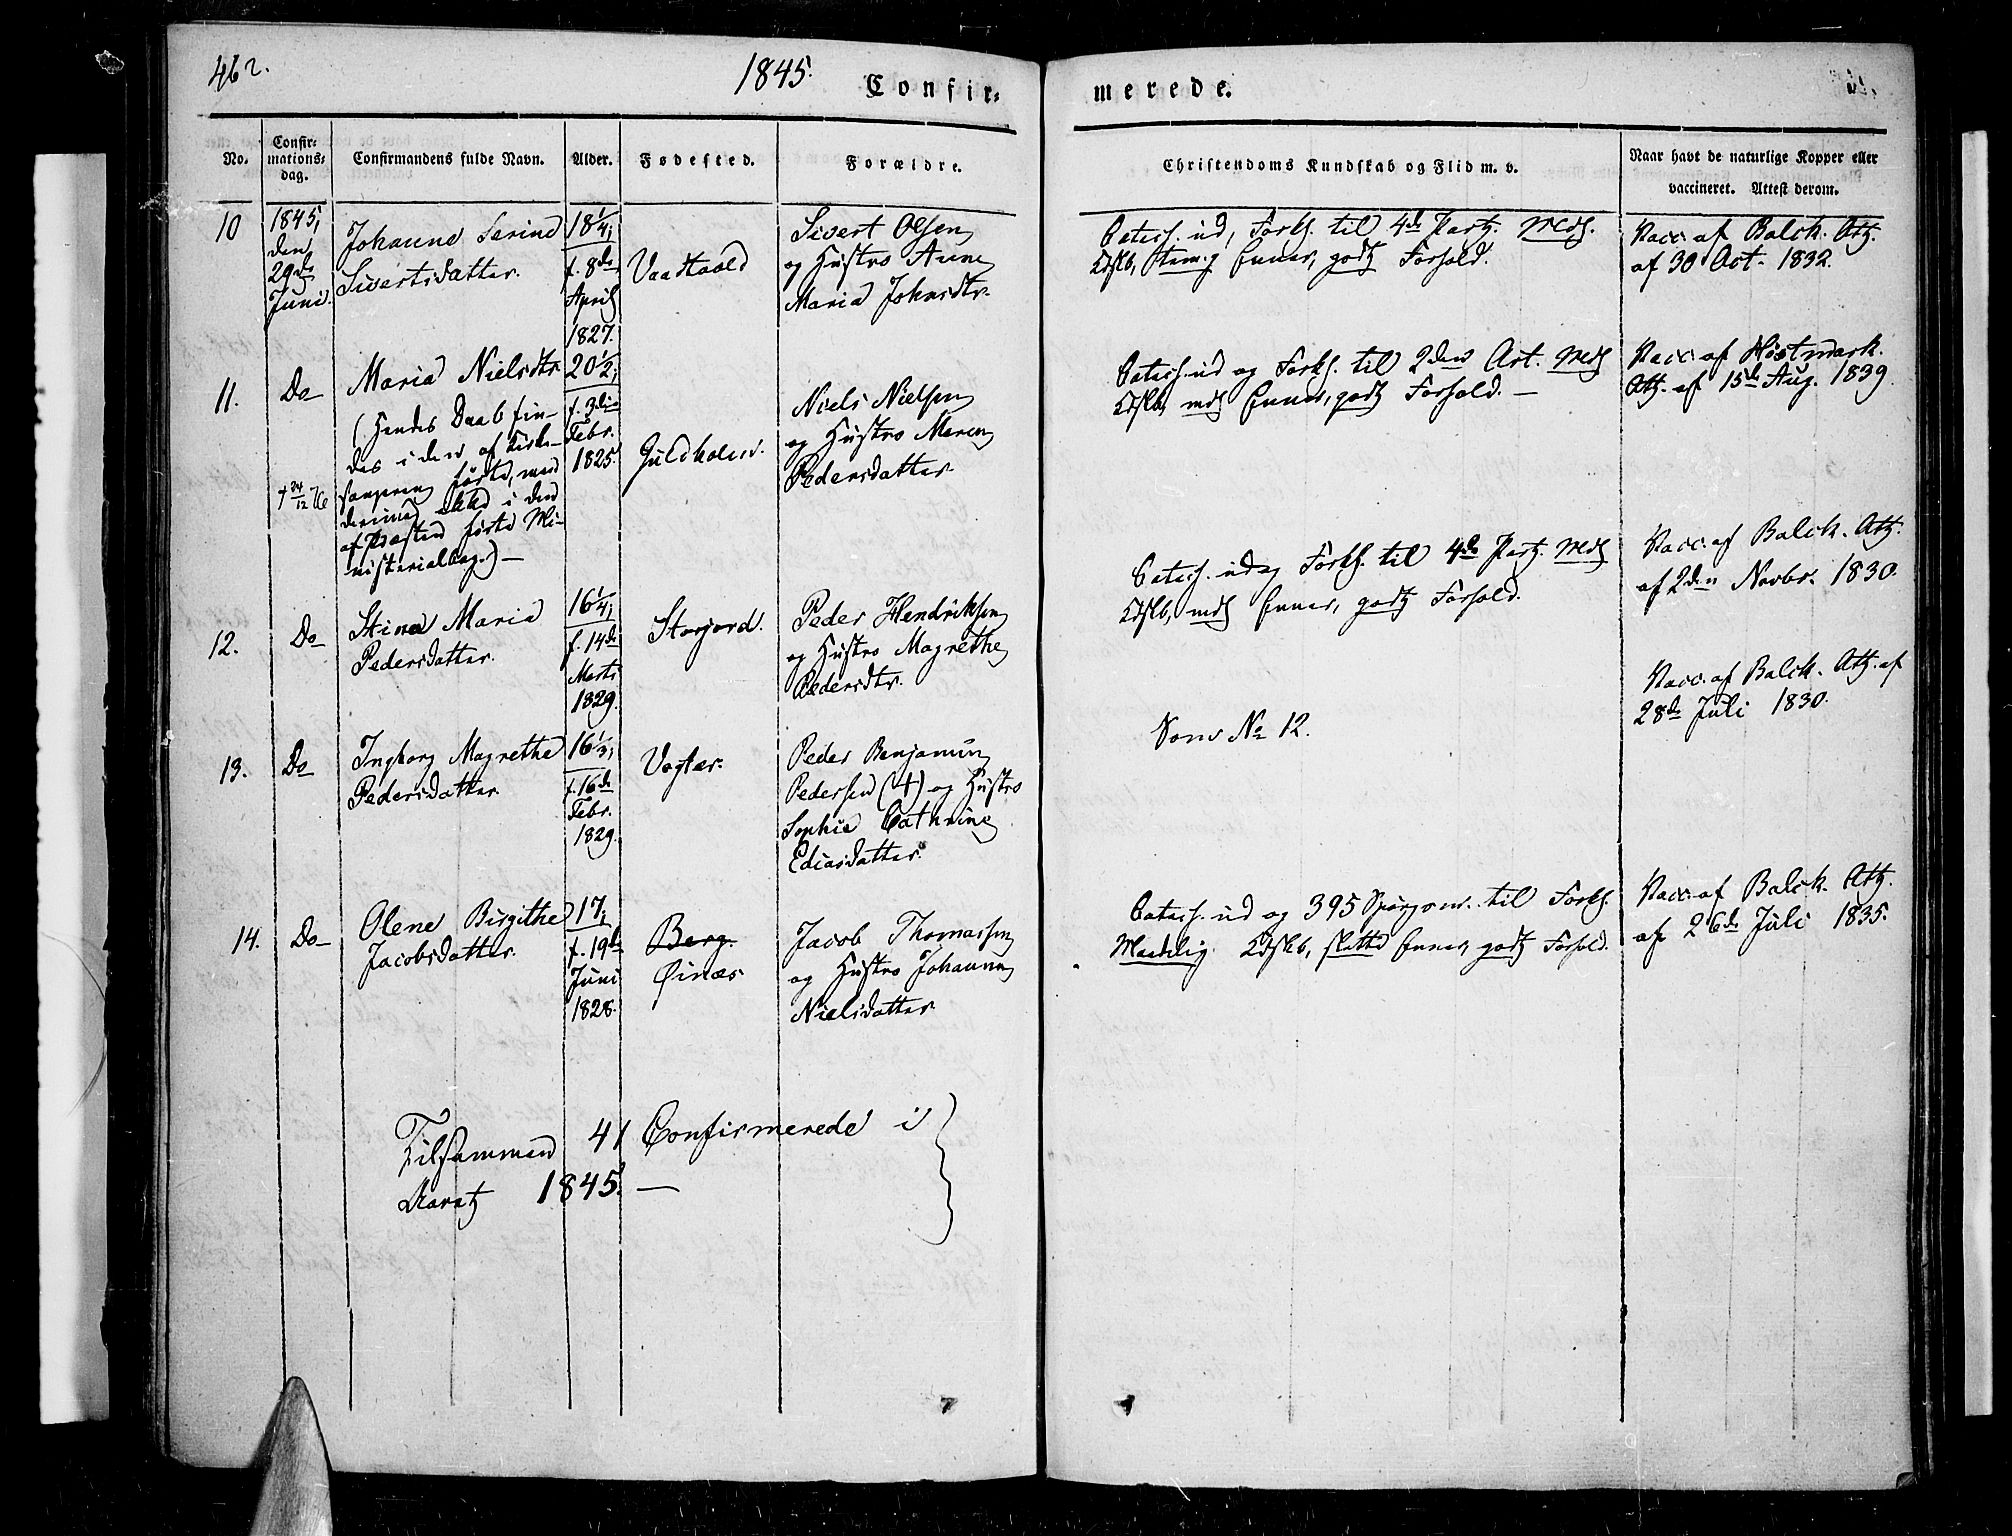 462.
1845.
Confir-
merede.
No.
Confir-
mations-
dag.
Confirmandens fulde Navn.
Alder.
Fødested.
Forældre.
Christendoms Kundskab og Flid m. v.
Naar havt de naturlige Kopper eller
vaccineret. Attest derom.
10
1845,
den
29de
Juni.
Johanne Serine
Sivertsdatter.
18¼,
f. 8de
April
1827.
Sivert Olsen
og Hustro Anne
Maria Johnsdtr.
Catech. ud, Forkl. til 4de Part. Mdl.
Kdskb, Evner, godt Forhold.
Vacc. af Balck. Att.
af 30 Oct. 1832.
11.
Do
†24/12 76
Maria Nielsdtr.
(Hendes Daab fin-
des i den af Kirke-
sangeren førte, med
derimod ikke i den
af Præsten førte Mi-
nisterialbog.) —
20½,
f. 3die
Febr.
1825.
Guldholm.
Niels Nielsen
og Hustro Maren
Pedersdatter.
Catech. ud og Forkl. til 2den Art. Mdl
Kdskb, mdl Evner, godt Forhold. —
Vacc. af Höstmark.
Att. af 15de Aug. 1839.
12.
Do
Stina Maria
Pedersdatter.
16¼,
f. 14de
Marts
1829.
Storjord.
Peder Hendriksen
og Hustro Magrethe
Pedersdtr.
Catech. ud og Forkl. til 4de Part. Mdl
Kdskb, mdl Evner, godt Forhold.
Vacc. af Balck. Att.
af 2den Novbr. 1830.
13.
Do
Ingborg Magrethe
Pedersdatter.
16⅓,
f. 16de
Febr.
1829.
Peder Benjamin
Pedersen (†) og Hustro
Sophie Cathrine
Ediasdatter.
Som No 12.
Vacc. af Balck. Att. af
28de Juli 1830.
14.
Do
Olene Birgithe
Jacobsdatter.
17,
f. 19de
Juni
1828.
Berg.
Øinæs
Jacob Thomassen
og Hustro Johanna
Nielsdatter.
Catech. ud og 395 Spørgsm. til Forkl.
Maadelig Kdskb, slette Evner, godt Forhold.
Vacc. af Balck. Att.
af 26de Juli 1835.
Tilsammen 41 Confirmerede i
Aaret 1845. —